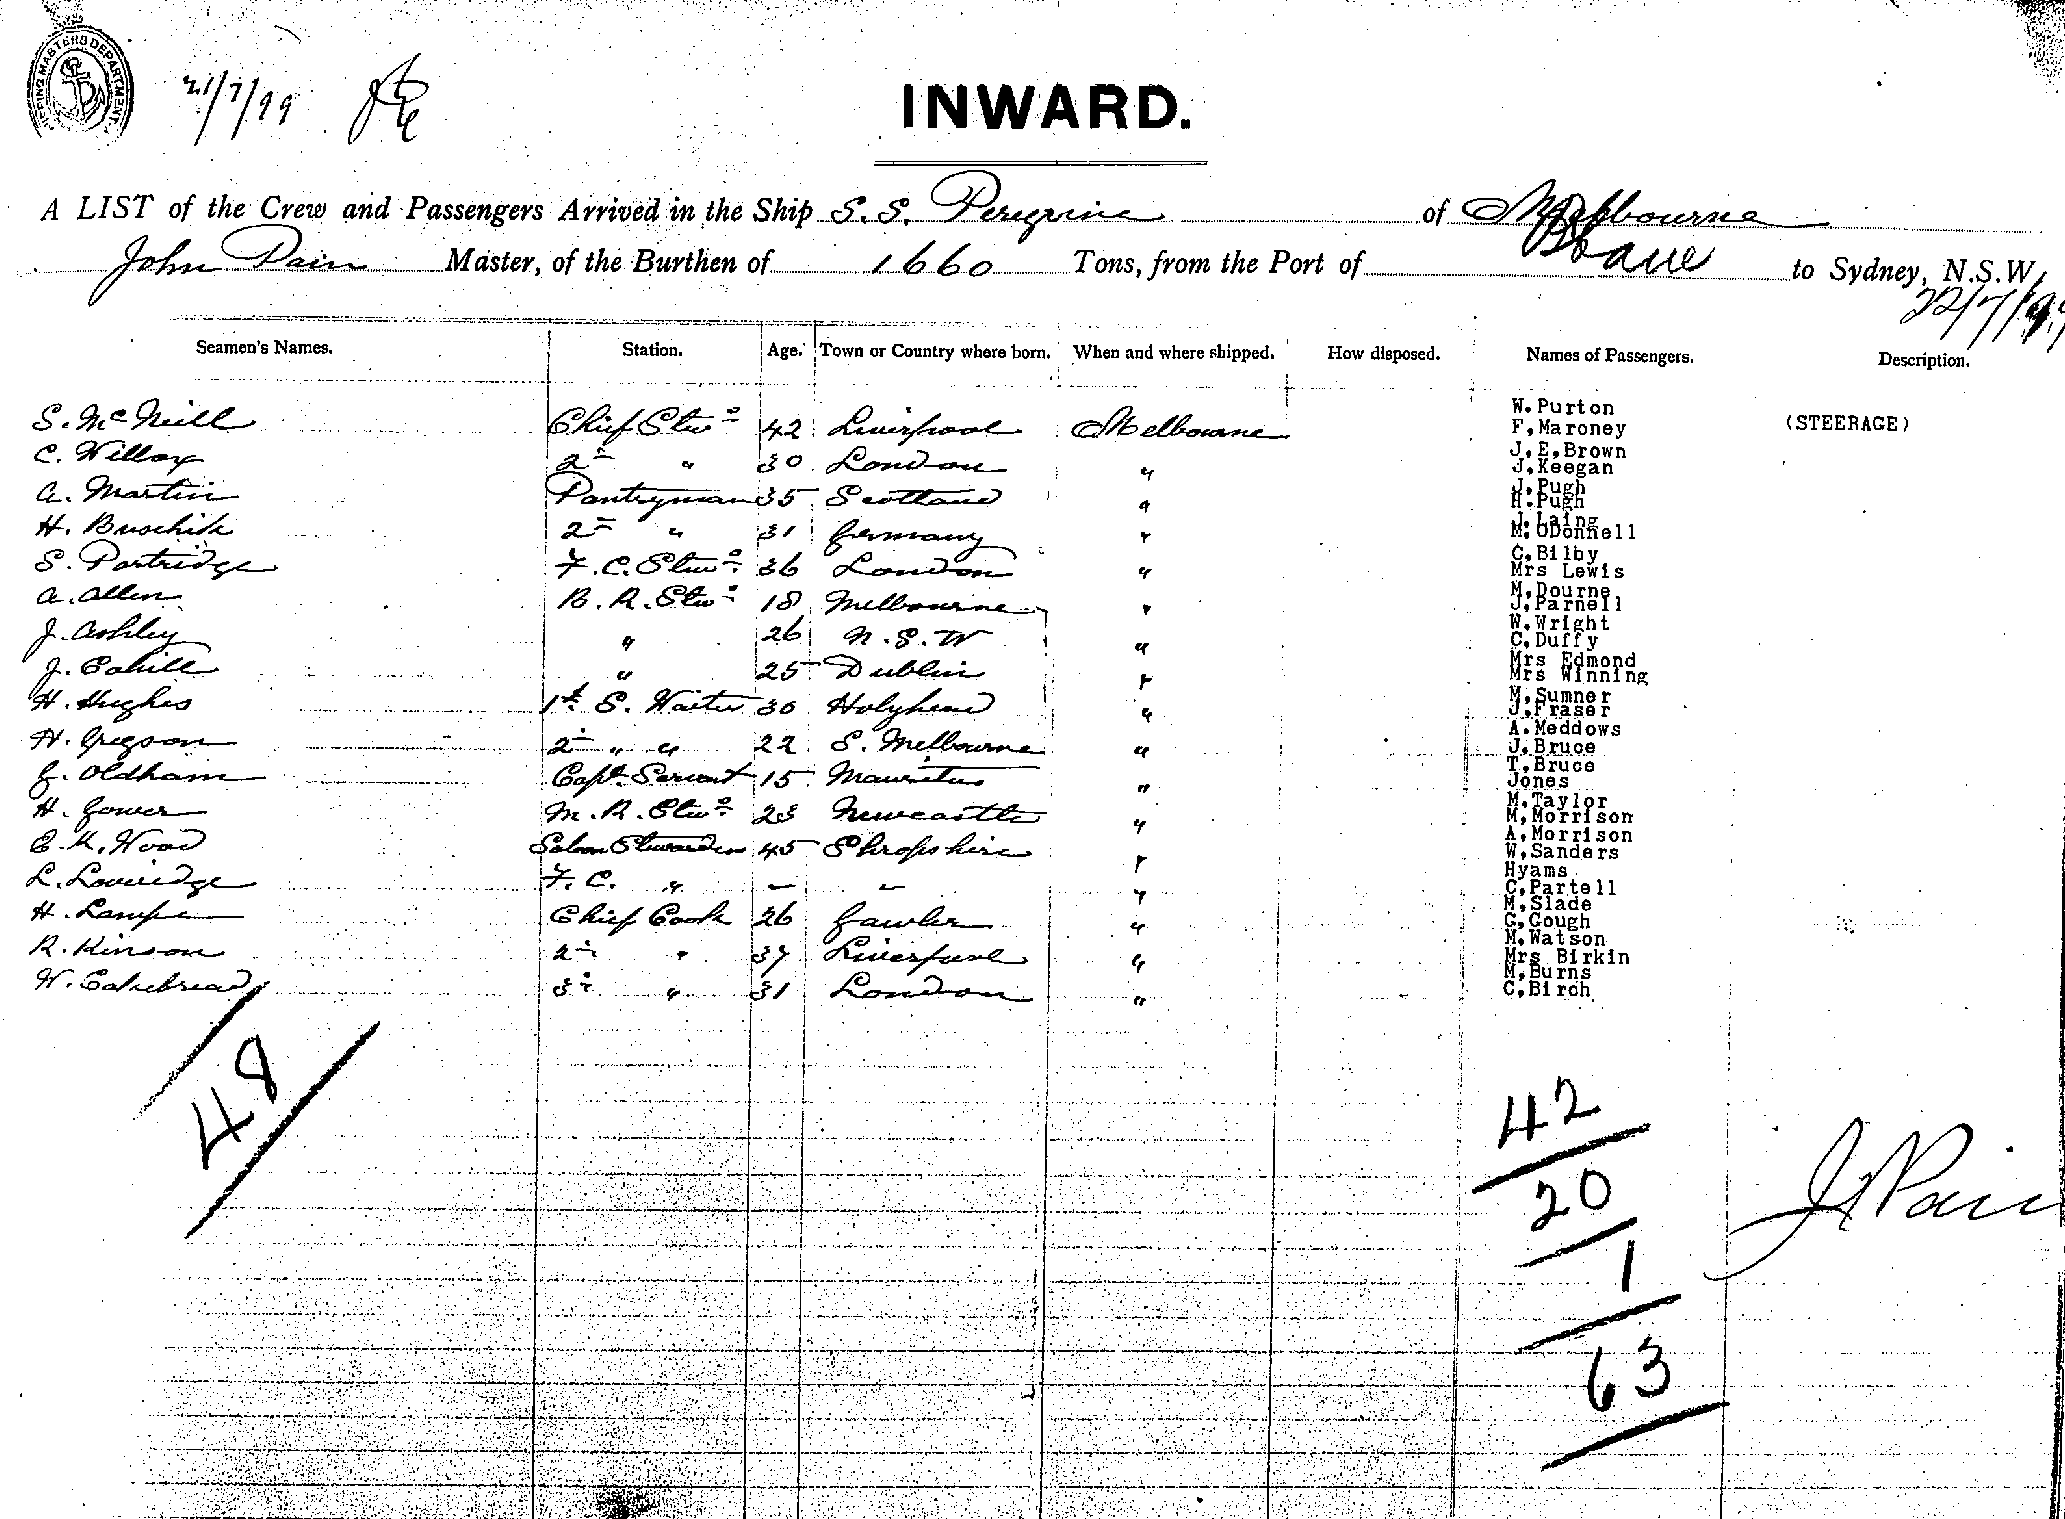 SHIPPING MASTERS DEPARTMENT
21/7/99
INWARD.
A LIST of the Crew and Passengers Arrived in the Ship S.S. Peregrine of Melbourne
John Pain Master, of the Burthen of 1660 Tons, from the Port of Bbane to Sydney, N.S.W.
22/7/99
Seamen's Names. Station. Age. Town or Country where born. When and where shipped. How disposed. Names of Passengers. Description.
W.Purton
S. McNeill Chief Stwd 42 Liverpool Melbourne F,Maroney (STEERAGE)
J.E,Brown
C. Willox 2nd " 30 London " J.Keegan
J.Pugh
A. Martin Pantryman 35 Scotland " H.Pugh
J.Laing
H. Buschik 2nd " 31 Germany " M.ODonnell
C.Bilby
S. Partridge F.C. Stwd 36 London " Mrs Lewis
M.Dourne
A. Allen B.R. Stwd 18 Melbourne " J.Parnell
W.Wright
J. Ashley " 26 N.S.W " C.Duffy
Mrs Edmond
J. Cahill " 25 Dublin " Mrs Winning
M.Sumner
H. Hughes 1st S. Waiter 30 Holyhead " J.Fraser
A.Meddows
H. Gregson 2nd " " 22 S. Melbourne " J.Bruce
T.Bruce
G. Oldham Capt. Servant 15 Mauritus " Jones
M.Taylor
H. Gower M.R. Stwd 23 Newcastle " M,Morrison
A.Morrison
E.K. Wood Saloon Stewardess 45 Shropshire " W,Sanders
Hyams
L. Loveridge F.C. " – – " C,Partell
M,Slade
H. Lampe Chief Cook 26 Gawler " G,Gough
M.Watson
R. Kinson 2nd " 37 Liverpool " Mrs Birkin
M,Burns
W. Cakebread 3rd " 31 London " C,Birch
48
42
20
1
63
J Pain